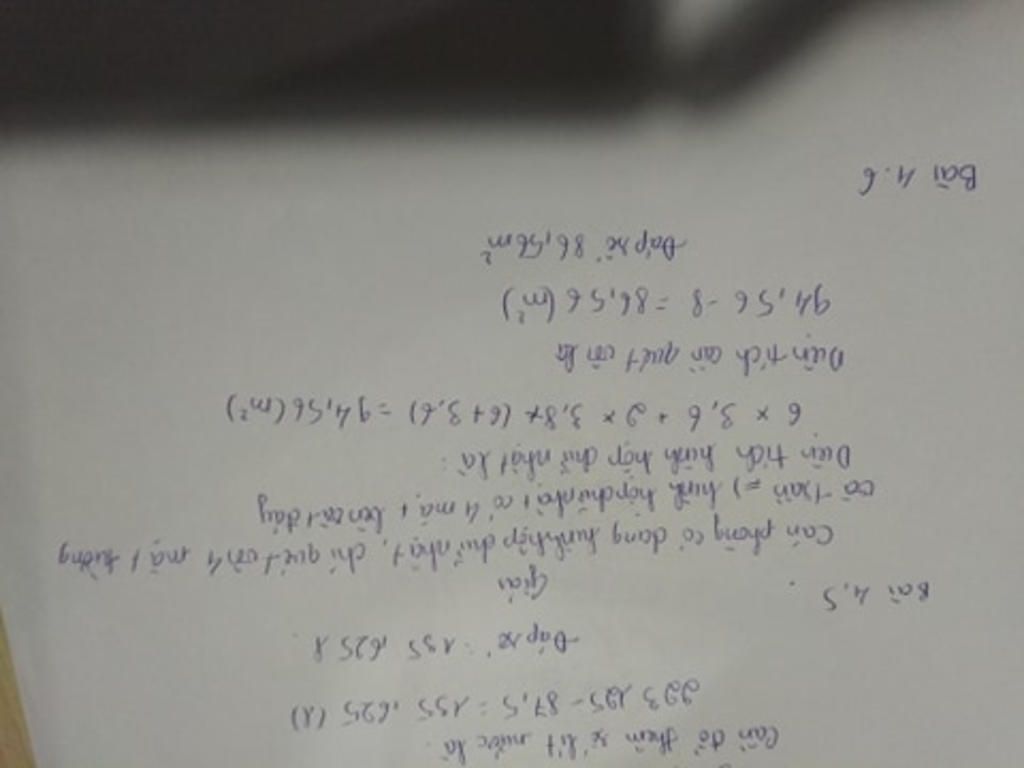 Cần đổ thêm số lít nước là
223 125 - 87,5 = 155,625 (l)
Đáp số: 155,625 l
Bài 4,5
Giải
Căn phòng có dạng hình hộp chữ nhật, chỉ quét vôi 4 mặt tường
có trần => hình hộp chữ nhật có 4 mặt bên
Diện tích hình hộp chữ nhật là:
6 x 3,6 + 2 x 3,8 x (6+3,6) = 94,56 (m²)
Diện tích cần quét vôi là
94,56 - 8 = 86,56 (m²)
Đáp số 86,56 m²
Bài 4.6